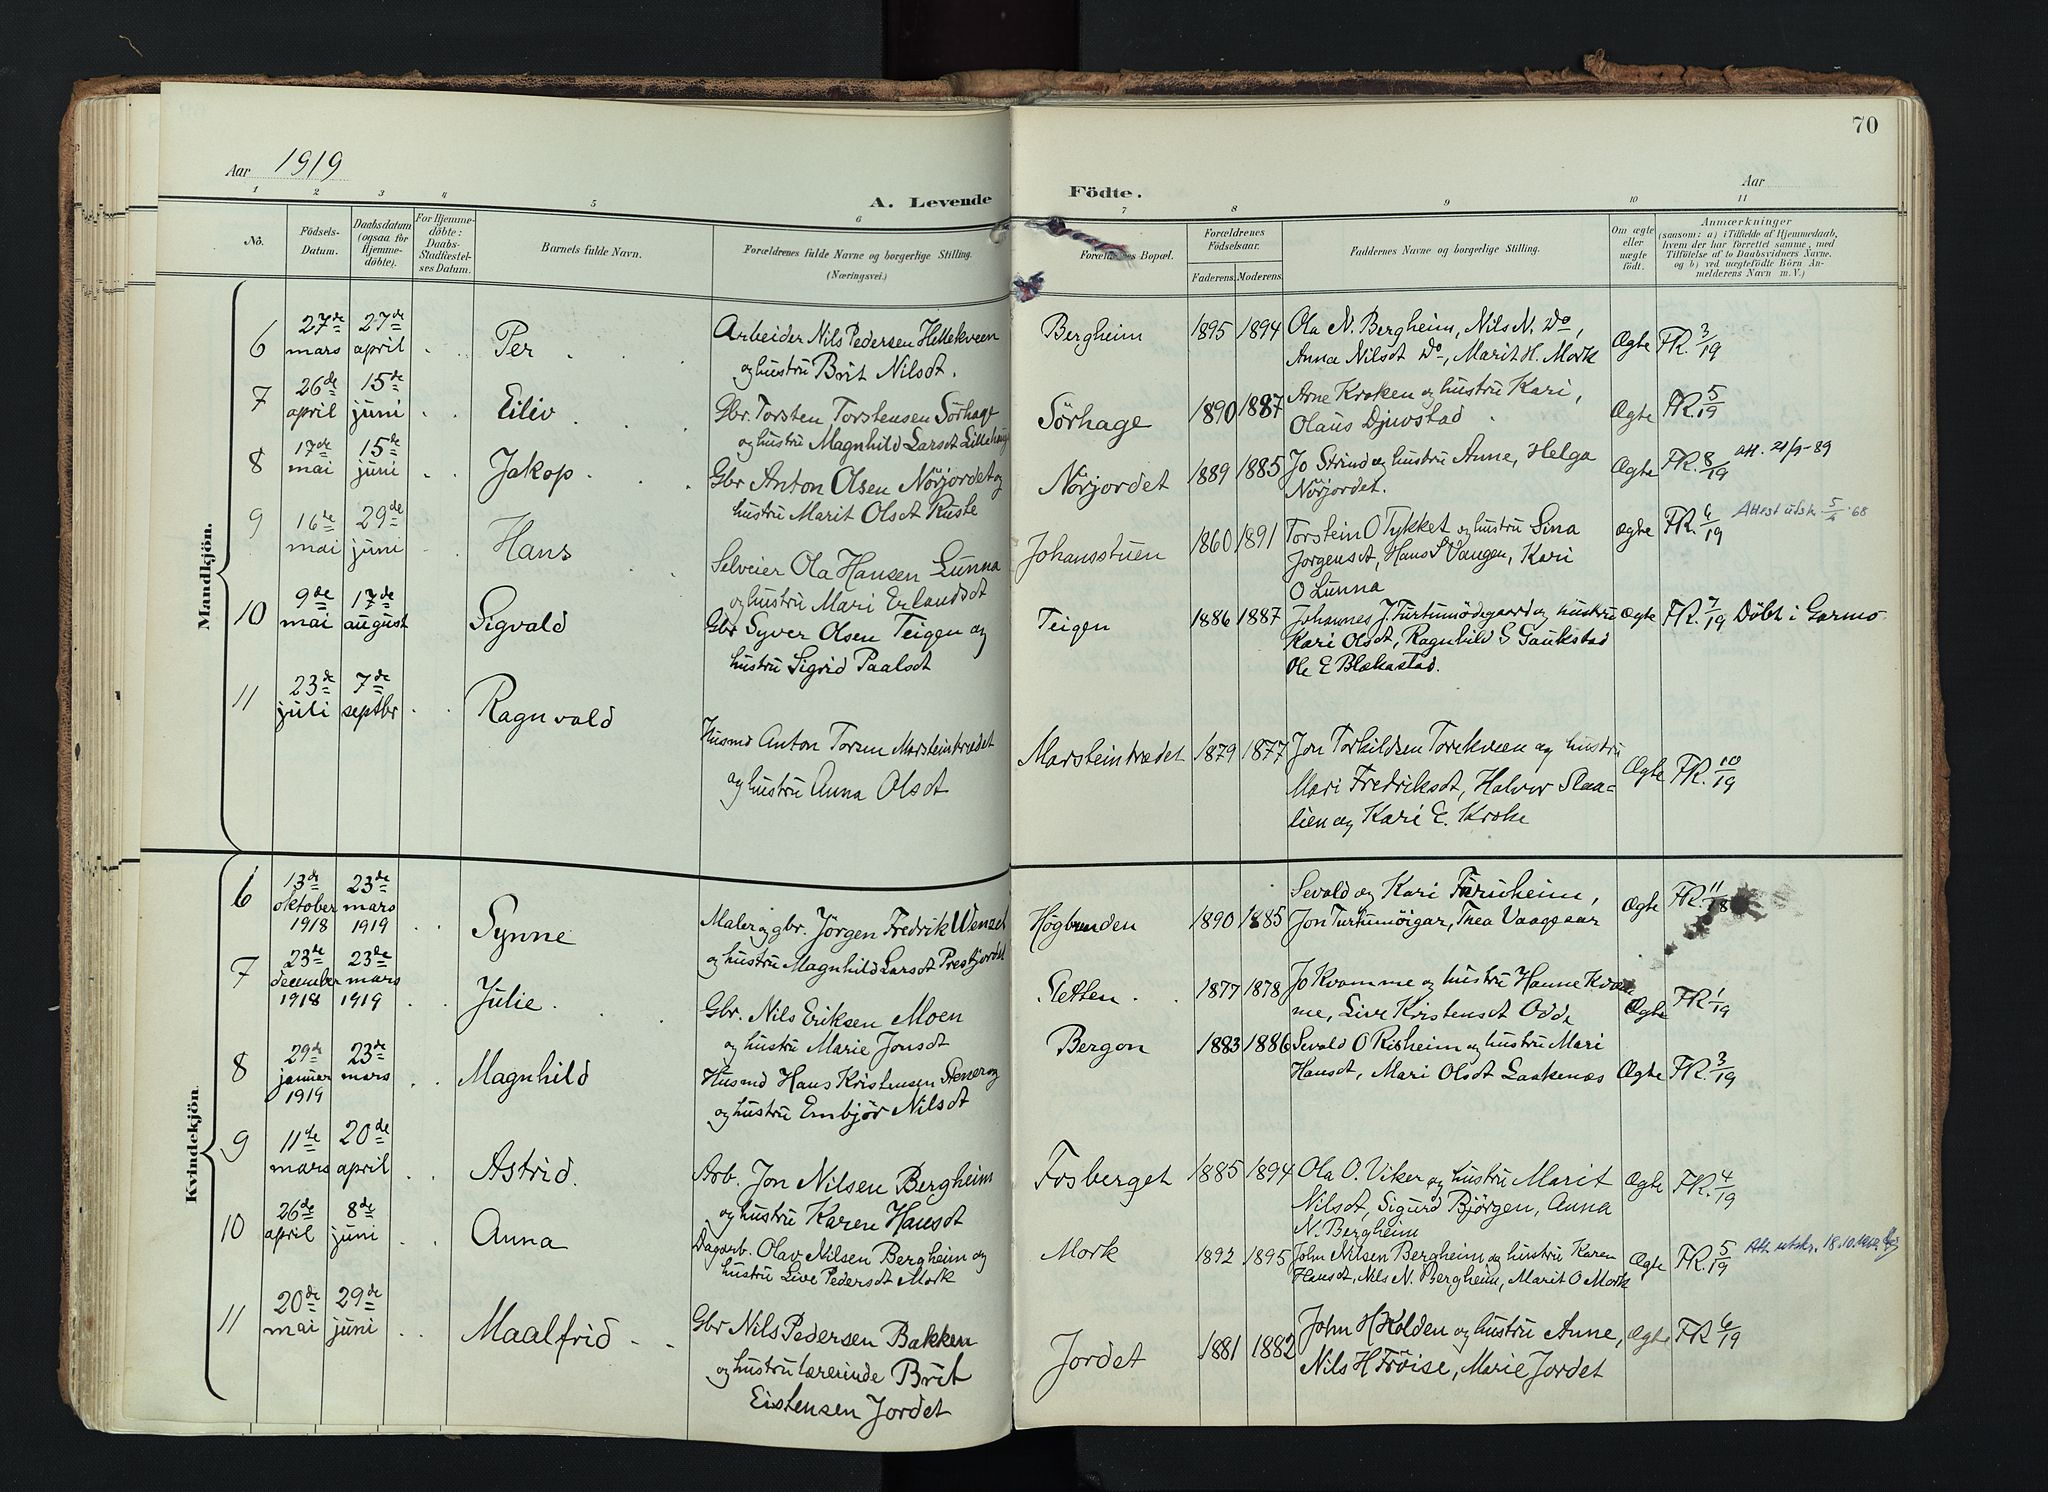 70
Aar 1919
Aar
A. Levende Födte.
1 2 3 4 5 6 7 8 9 10 11
Nö.
Födsels-
Datum.
Daabsdatum
(ogsaa for
Hjemme-
döbte).
For Hjemme-
döbte:
Daabs-
Stadfæstel-
ses Datum.
Barnets fulde Navn.
Forældrenes fulde Navne og borgerlige Stilling.
(Næringsvei.)
Forældrenes Bopæl.
Forældrenes
Födselsaar.
Faderens. Moderens.
Faddernes Navne og borgerlige Stilling.
Om ægte
eller
uægte
födt.
Anmærkninger
(saasom: a) i Tilfælde af Hjemmedaab,
hvem der har forrettet samme, med
Tilföielse af to Daabsvidners Navne.
og b) ved uægtefödte Börn An-
melderens Navn m. V.)
Mandkjön.
6 27de mars 27de april Per
Arbeider Nils Pedersen Hellekveen
og hustru Brit Nilsdt.
Bergheim 1895 1894
Ola N. Bergheim, Nils N. Do,
Anna Nilsdt Do, Marit H. Mork
Ægte FR. 3/19
7 26de april 15de juni Eiliv
Gbr. Torsten Torstensen Sörhage
og hustru Magnhild Larsdt Lillehaug
Sörhage 1890 1887
Arne Kroken og hustru Kari,
Olaus Djuvstad
Ægte FR. 5/19
8 17de mai 15de juni Jakop
Gbr Anton Olsen Nörjordet og
hustru Marit Olsdt Ruste
Nörjordet 1889 1885
Jo Strind og hustru Anne, Helga
Nörjordet.
Ægte FR. 8/19 att. 21/9-89
9 16de mai 29de juni Hans
Selveier Ola Hansen Lunna
og hustru Mari Erlandsdt
Johansstuen 1860 1891
Torstein O Tykket og hustru Sina
Jorgensdt, Hans S Vangen, Kari
O Lunna
Ægte FR. 6/19 Attest utskr. 68
10 9de mai 17de august Sigvald
Gbr Syver Olsen Teigen og
hustru Sigrid Paalsdt
Teigen 1886 1887
Johannes J. Turtumödegaard og hustru
Kari Olsdt, Ragnhild S Gaukstad
Ole E Blakastad.
Ægte FR. 7/19 Döbt i Garmo
11 23de juli 7de septbr Ragnvald
Husmd Anton Toresen Marsteintrædet
og hustru Anna Olsdt
Marsteintrædet 1879 1877
Jon Torkildsen Torekveen og hustru
Mari Fredriksdt, Halvor Slaa-
lien og Kari E. Kroke
Ægte FR. 10/19
Kvindekjön
6 13de oktober 1918 23de mars 1919 Synne
Maler og gbr. Jörgen Fredrik Wensel
og hustru Magnhild Larsdt Prestjordet
Högbrenden 1890 1885
Sevald og Kari Furuheim,
Jon Turtumöigar, Thea Vaagaaar
Ægte FR. 11/18
7 23de december 1918 23de mars 1919 Julie
Gbr. Nils Eriksen Moen
og hustru Marie Jonsdt
Sletten 1877 1878
Jo Kvamme og hustru Hanne Kvam
me, Live Kristensdt Odde
Ægte FR. 1/19
8 29de januar 1919 23de mars Magnhild
Husmd Hans Kristensen
og hustru Embjör Nilsdt
Bergon 1883 1886
Sevald O Risheim og hustru Mari
Hansdt, Mari Olsdt Laakenæs
Ægte FR. 3/19
9 11te mars 20de april Astrid.
Arb. Jon Nilsen Bergheim
og hustru Karen Hansdt
Fosberget 1885 1894
Ola O. Viker og hustru Marit
Nilsdt, Sigurd Björgen, Anna
N. Bergheim
Ægte FR. 4/19
10 26de april 8de juni Anna
Dagarb. Olav Nilsen Bergheim og
hustru Live Pedersdt Mork
Mork 1892 1895
John Nilsen Bergheim og hustru Karen
Hansdt, Nils N. Bergheim, Marit O Mork
Ægte FR. 5/19 Att. utskr. 18.10.
11 20de mai 29de juni Maalfrid
Gbr Nils Pedersen Bakken
og hustru lærerinde Brit
Eistensen Jordet
Jordet 1881 1882
John H Holden og hustru Anne,
Nils H Fröise, Marie Jordet
Ægte FR 6/19